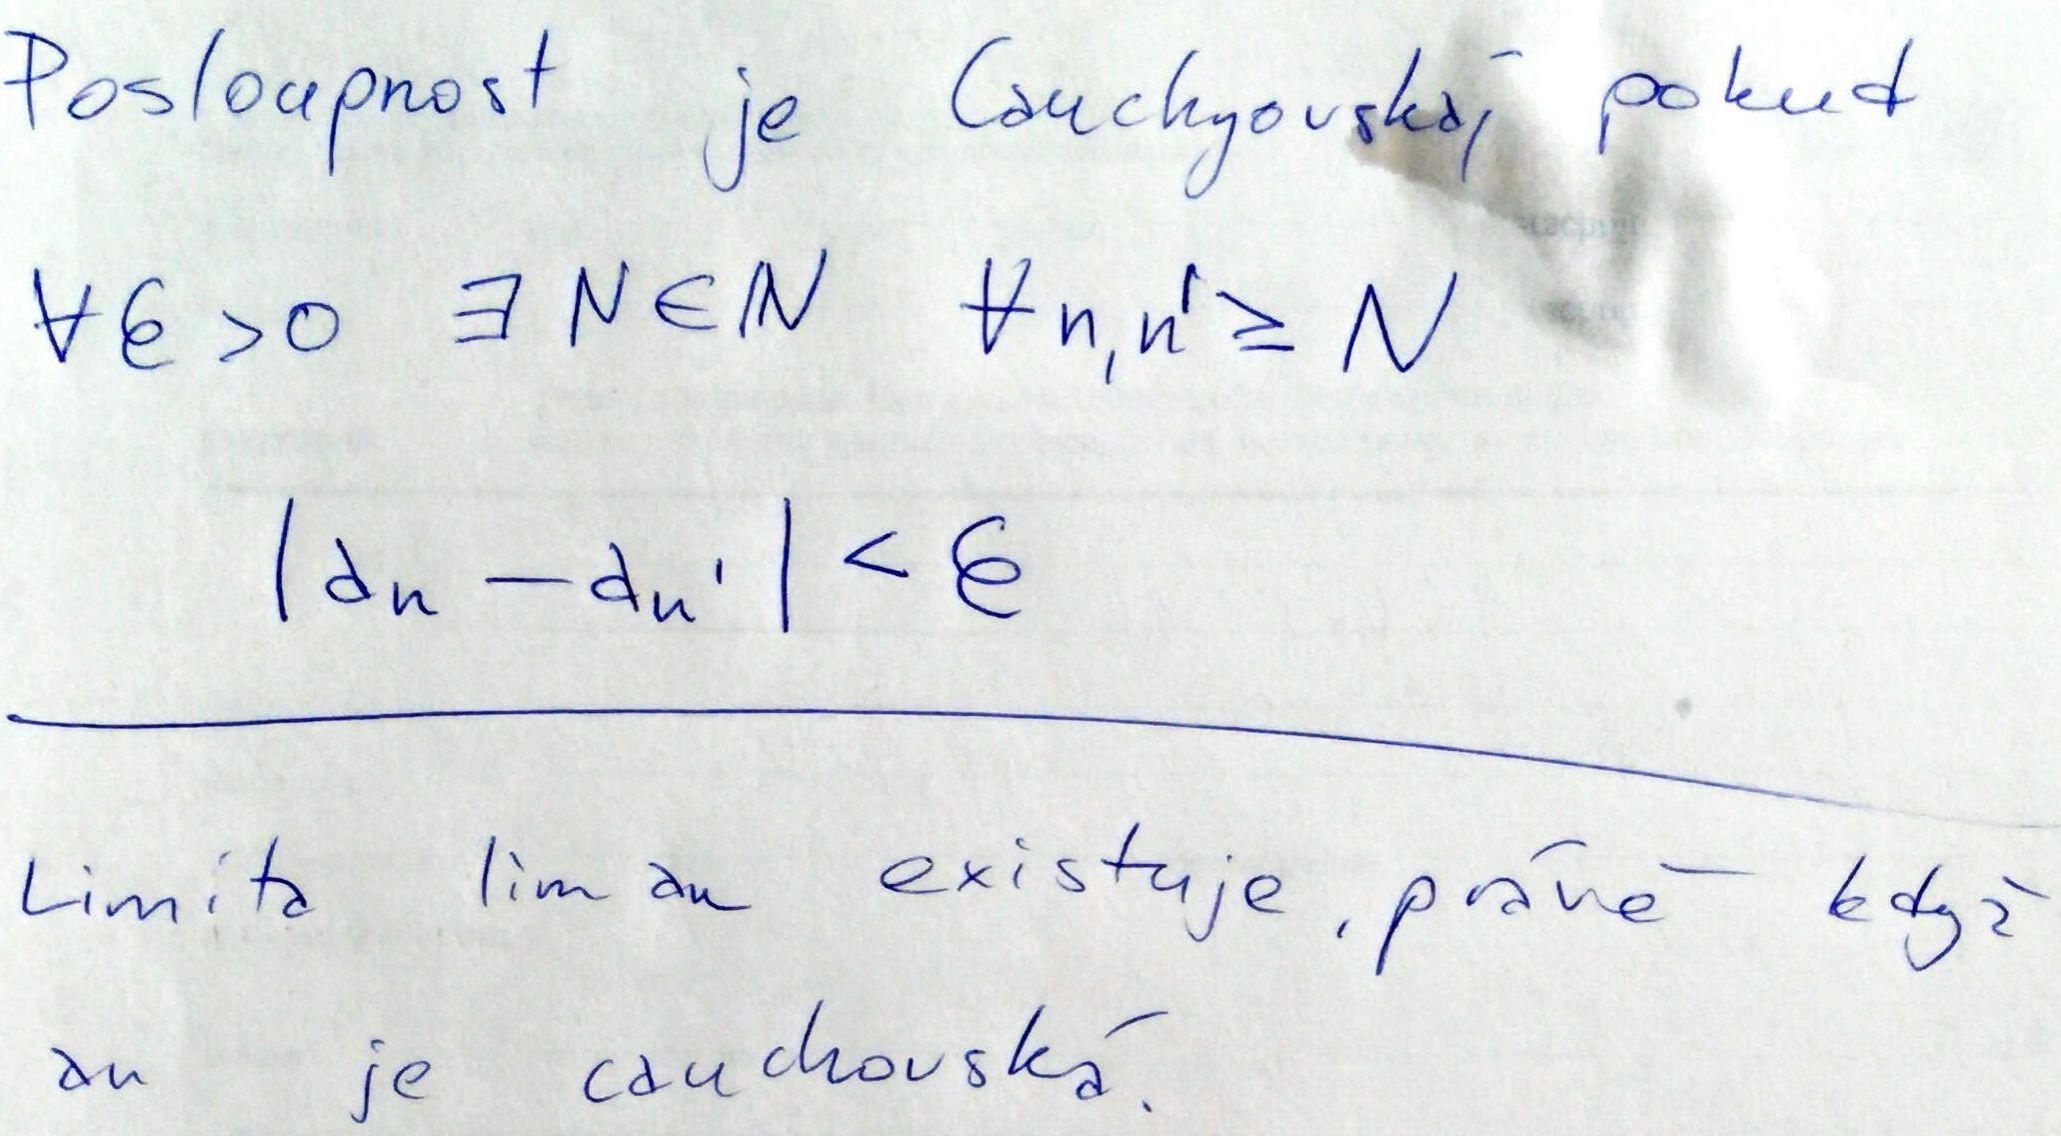 Posloupnost je Cauchyovská, pokud
∀ϵ>0 ∃ N∈ℕ ∀n,n'≥ N
|an − an'| < ϵ
Limita lim an existuje, právě když
an je cauchovská.